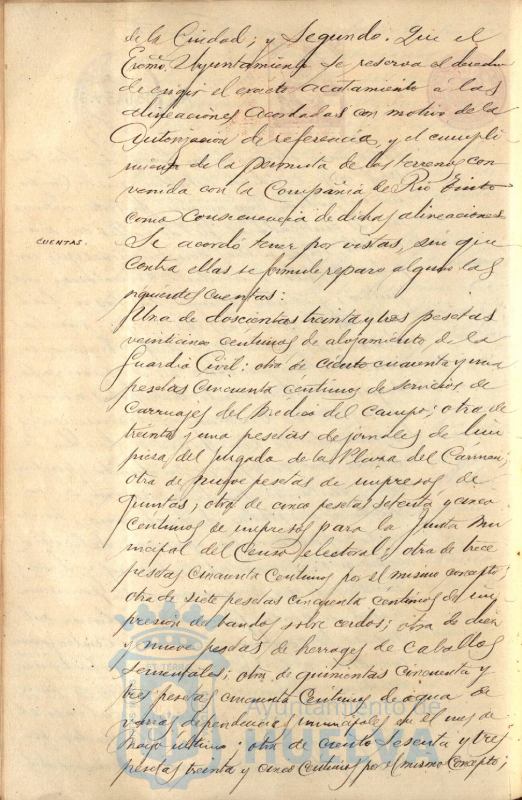 de la Ciudad; y Segundo. Que el
Excmo. Ayuntamiento se reserva el derecho
de exigir el exacto acatamiento a las
alineaciones acordadas con motivo de la
autorización de referencia, y el cumpli
miento de la permuta de los terrenos con
venida con la Compañia de Rio Tinto
como consecuencia de dichas alineaciones.
CUENTAS.
Se acordó tener por vistas, sin que
contra ellas se formule reparo alguno las
siguientes cuentas:
Una de doscientas treinta y tres pesetas
veinticinco centimos de alojamiento de la
Guardia Civil; otra de ciento cincuenta y una
pesetas cincuenta centimos de servicios de
carruajes del Medico del Campo; otra de
treinta y una pesetas de jornales de lim
pieza del Juzgado de la Plaza del Carmen;
otra de nueve pesetas de impresos de
quintas; otra de cinco pesetas setenta y cinco
centimos de impresos para la Junta Mu
nicipal del Censo electoral; otra de trece
pesetas cincuenta centimos por el mismo concepto;
otra de siete pesetas cincuenta centimos de im
presión de bandos sobre cerdos; otra de diez
y nueve pesetas de herrages de caballos
sementales; otra de quinientas cincuenta y
tres pesetas cincuenta centimos de agua de
varias dependencias municipales en el mes de
Mayo ultimo; otra de ciento sesenta y tres
pesetas treinta y cinco centimos por el mismo concepto;
Ayuntamiento de
HUELVA